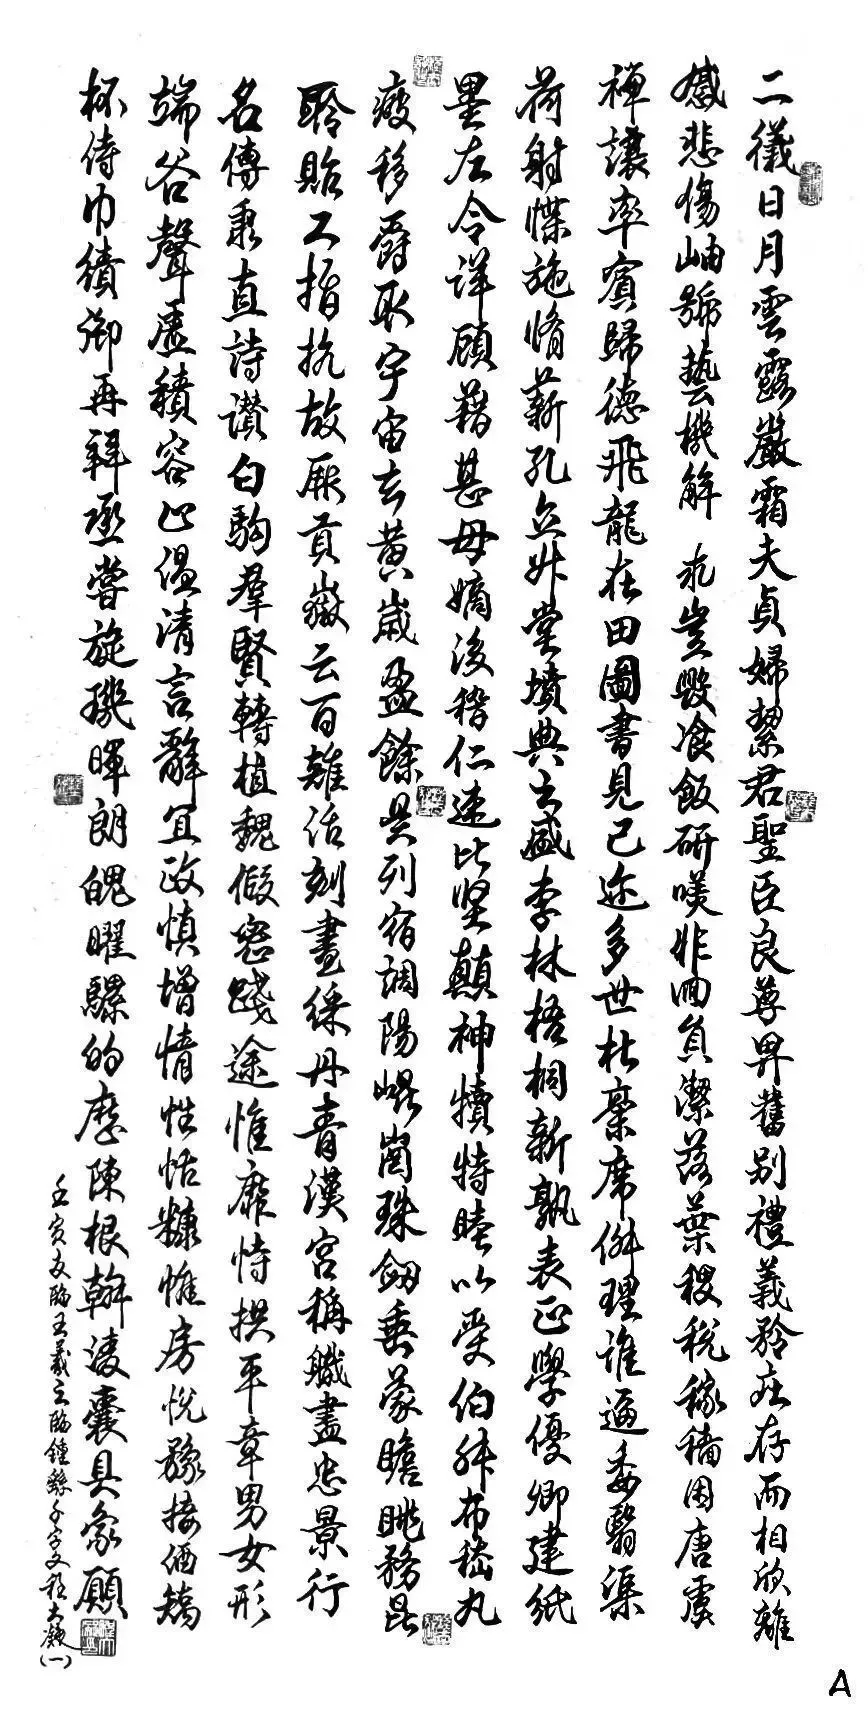 二儀日月雲露嚴霜夫貞婦絜君聖臣良尊卑舊別禮義矜莊存而相欣離
感悲傷岫號藝機解豈毀飡飯研嘆非罔貞潔落葉稷稅稼穡困唐虞
禪讓率賓歸德飛龍在田圖書見己迩多世杜稾席俳理誰逼委翳渠
荷射牒施脩薪孔升堂墳典之盛李林梧桐新孰表正學優卿建紙
墨左令詳顧藉甚母嫡後稽仁連比堅顛神犢特以受伯叔布嵇丸
疲移爵取宇宙玄黃歲盈餘吳列宿調陽崐崗珠劒垂蒙瞻眺務昆
聆貽工指抗故厥貢嶽云百雞活刻畫綵丹青漢宮稱職盡忠景行
名傳秉直詩讃白駒羣賢轉植魏假密踐途惟靡恃拱平章男女形
端谷聲虛積容止温清言辭宜政慎增情性恬糠惟房悅豫接
杯侍巾績御再拜烝嘗旋璣暉朗魄曜騾的歷陳根翰凌囊具象願
壬寅夏臨王羲之臨鍾繇千字文
(一)
A